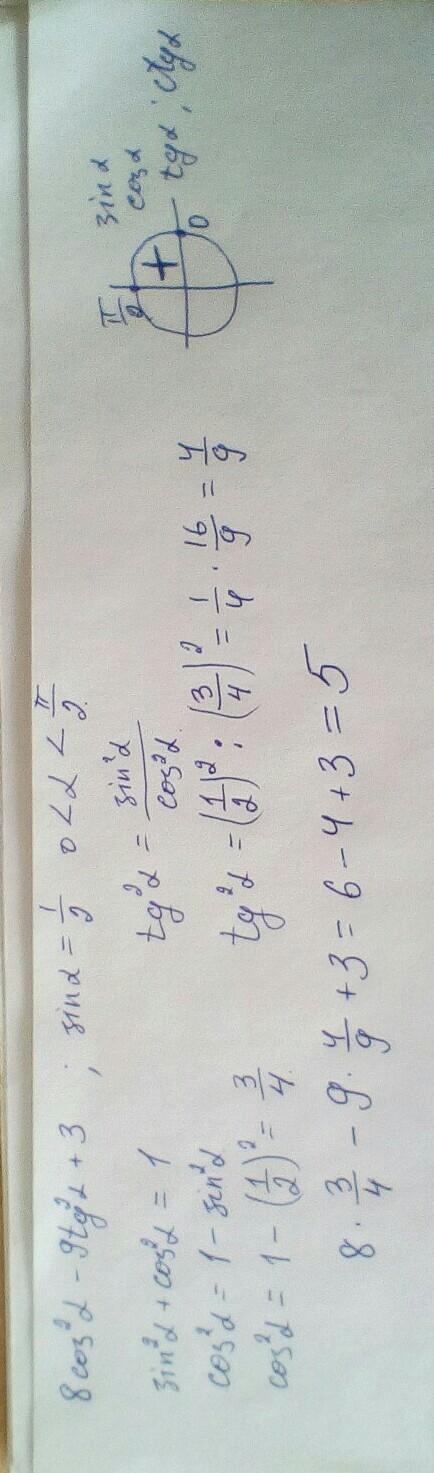 8cos²α - 9tg²α + 3 ; sinα = 1/2 0 < α < π/2
sin²α + cos²α = 1
cos²α = 1 - sin²α
cos²α = 1 - (1/2)² = 3/4
tg²α = sin²α/cos²α
tg²α = (1/2)² : (3/4)² = 1/4 · 16/9 = 4/9
8 · 3/4 - 9 · 4/9 + 3 = 6 - 4 + 3 = 5
π/2
+
0
sinα
cosα
tgα ; ctgα